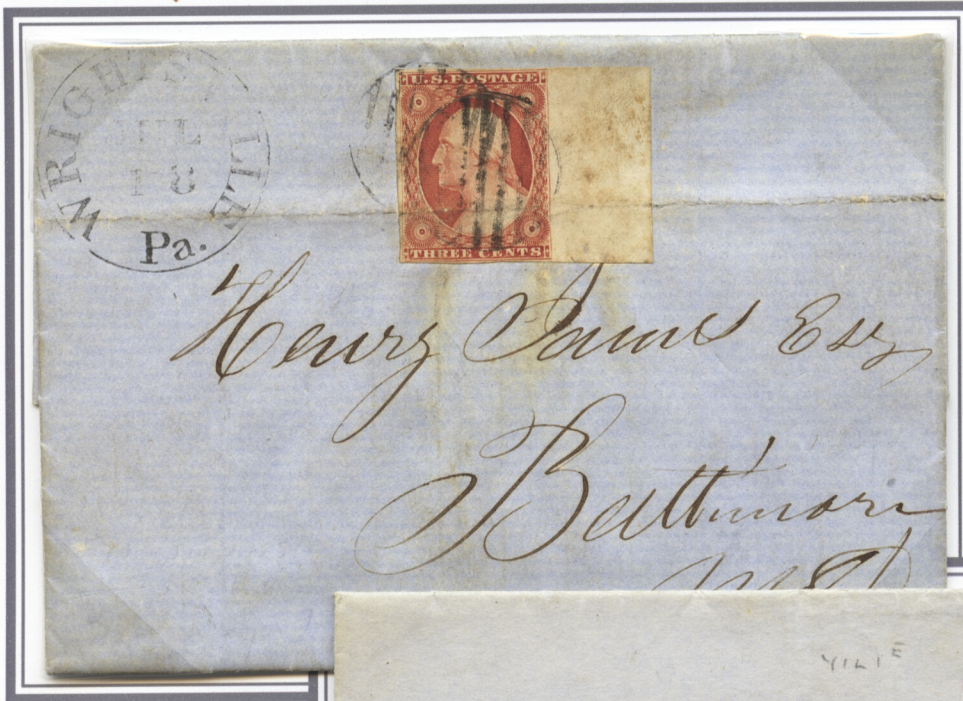 WRIGHTSVILLE
JUL
18
Pa.
U.S. POSTAGE
THREE CENTS
Henry James Esq
Baltimore
Md